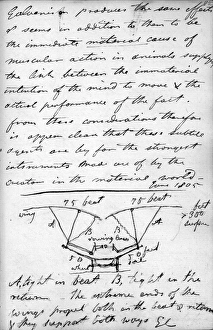 Galvanism produces the same effect
& seems in addition to them to be
the immediate material cause of
muscular action in animals supplying
the link between the immaterial
intention of the mind to move & the
actual performance of the fact.
from these considerations therefore
it appears clean that these subtle
agents are by far the strongest
instruments made use of by the
Creator in the material world
June 1805
75 beat 75 beat
wing
A
B
A
feet
x 300
surface
rowing
50
wheel
A, tight in beat B, tight in the
return. The extreme ends of the
wings propel both in the beat & return
& they support both ways